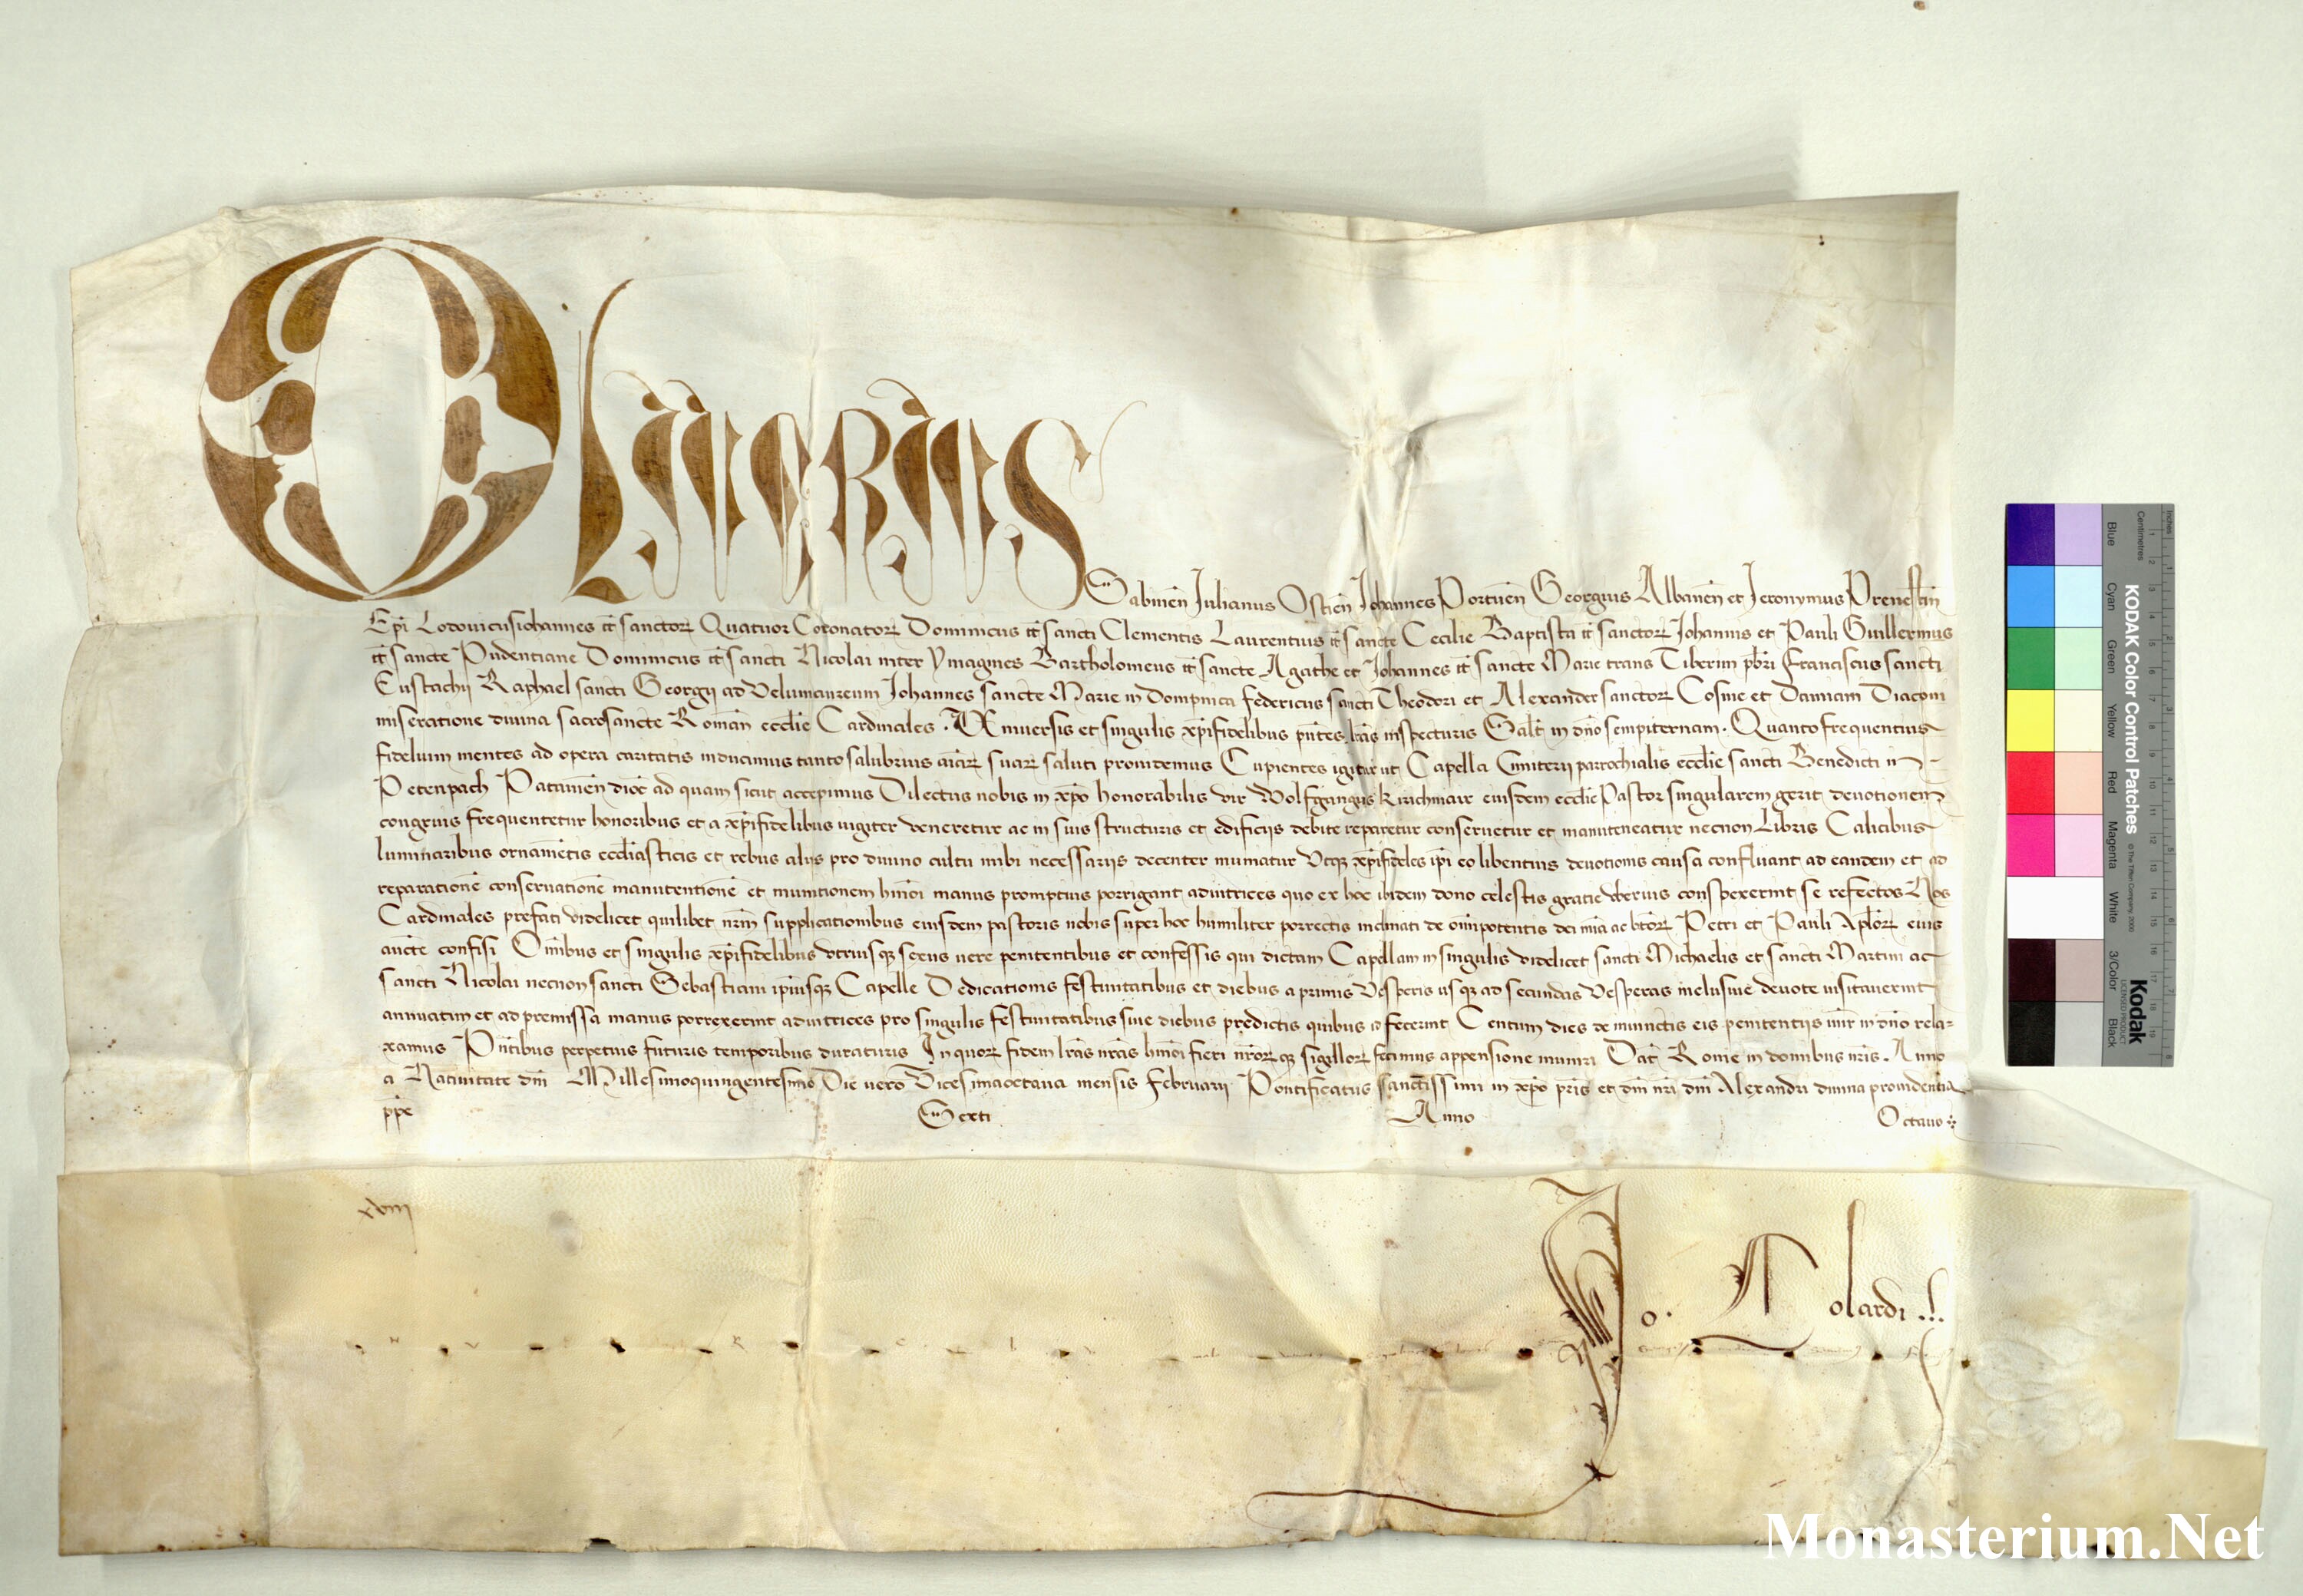 OLIVERIUS
Sabinen̄ Iulianus Ostien̄ Iohannes Portuen̄ Georgius Albanen̄ et Ieronymus Prenestin̄
Ep̄i Lodouicusiohannes tt̄ sanctoꝝ Quatuor Coronatoꝝ Dominicus tt̄ sancti Clementis Laurentius tt̄ sancte Cecilie Baptista tt̄ sanctoꝝ Iohannis et Pauli Guillermus
tt̄ sancte Pudentiane Dominicus tt̄ sancti Nicolai inter Ymagines Bartholomeus tt̄ sancte Agathe et Iohannes tt̄ sancte Marie trans Tiberim pb̄ri Franciscus sancti
Eustachij Raphael sancti Georgij ad Uelumaureum Iohannes sancte Marie in Dompnica Federicus sancti Theodori et Alexander sanctoꝝ Cosme et Damiani Diaconi
miseratione diuina sacrosancte Roman̄ eccl̄ie Cardinales. Uniuersis et singulis xp̄ifidelibus pn̄tes lr̄as inspecturis Salt̄ in dn̄o sempiternam. Quanto frequentius
fidelium mentes ad opera caritatis inducimus tanto salubrius aīaꝝ suaꝝ saluti prouidemus Cupientes igitur ut Capella Cimiterij parrochialis eccl̄ie sancti Benedicti in
Petenpach Patauien̄ dioc̄ ad quam sicut accepimus Dilectus nobis in xp̄o honorabilis vir Wolfgangus Kirichmair eiusdem eccl̄ie Pastor singularem gerit deuotionem
congruis frequentetur honoribus et a xp̄ifidelibus iugiter veneretur ac in suis structuris et edificijs debite reparetur conseruetur et manuteneatur necnon Libris Calicibus
luminaribus ornamētis eccl̄iasticis et rebus alijs pro diuino cultu inibi necessarijs decenter muniatur Utqꝫ xp̄ifideles ip̄i eo libentius deuotionis causa confluant ad eandem et ad
reparationē conseruationē manutentionē et munitionem hmōi manus promptius porrigant adiutrices quo ex hoc ibidem dono celestis gratie uberius conspexerint se refectos Nos
Cardinales prefati videlicet quilibet nr̄m supplicationibus eiusdem pastoris nobis super hoc humiliter porrectis inclinati de om̄ipotentis dei mīa ac btōꝝ Petri et Pauli Apl̄oꝝ eius
auct̄e confisi Omībus et singulis xp̄ifidelibus utriusqꝫ sexus vere penitentibus et confessis qui dictam Capellam in singulis videlicet sancti Michaelis et sancti Martini ac
sancti Nicolai necnon sancti Sebastiani ip̄iusqꝫ Capelle Dedicationis festiuitatibus et diebus a primis Vesperis usqꝫ ad secundas Vesperas inclusiue deuote uisitauerint
annuatim et ad premissa manus porrexerint adiutrices pro singulis festiuitatibus siue diebus predictis quibus id fecerint Centum dies de iniunctis eis penitentijs mīr in dn̄o rela=
xamus Pn̄tibus perpetuis futuris temporibus duraturis In quoꝝ fidem lr̄as nr̄as hmōi fieri nr̄oꝝqꝫ sigilloꝝ fecimus appensione muniri Dat̄ Rome in domibus nr̄is. Anno
a Natiuitate dn̄i Millesimoquingentesimo Die uero Vicesimaoctaua mensis Februarij Pontificatus sanctissimi in xp̄o pr̄is et dn̄i nr̄i dn̄i Alexandri diuina prouidentia
pp̄e Sexti Anno Octauo
xviij
Jo. Nolardi
Monasterium.Net
KODAK Color Control Patches
Kodak
LICENSED PRODUCT
© The Tiffen Company, 2000
Blue Cyan Green Yellow Red Magenta White 3/Color Black
Inches
Centimetres